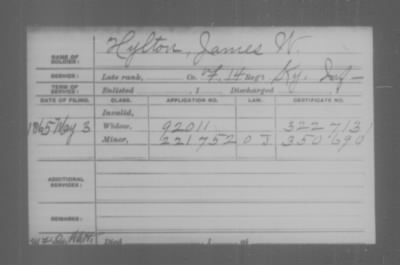 Hylton, James W.
NAME OF SOLDIER:
SERVICE: Late rank, Co. F, 14 Reg't Ky. Inf
TERM OF SERVICE: Enlisted , 1 Discharged , 1
DATE OF FILING. CLASS. APPLICATION NO. LAW. CERTIFICATE NO.
Invalid,
1865 May 3 Widow, 92011 322713
Minor, 221752 O J 350690
ADDITIONAL SERVICES:
REMARKS:
Died , 1 , at